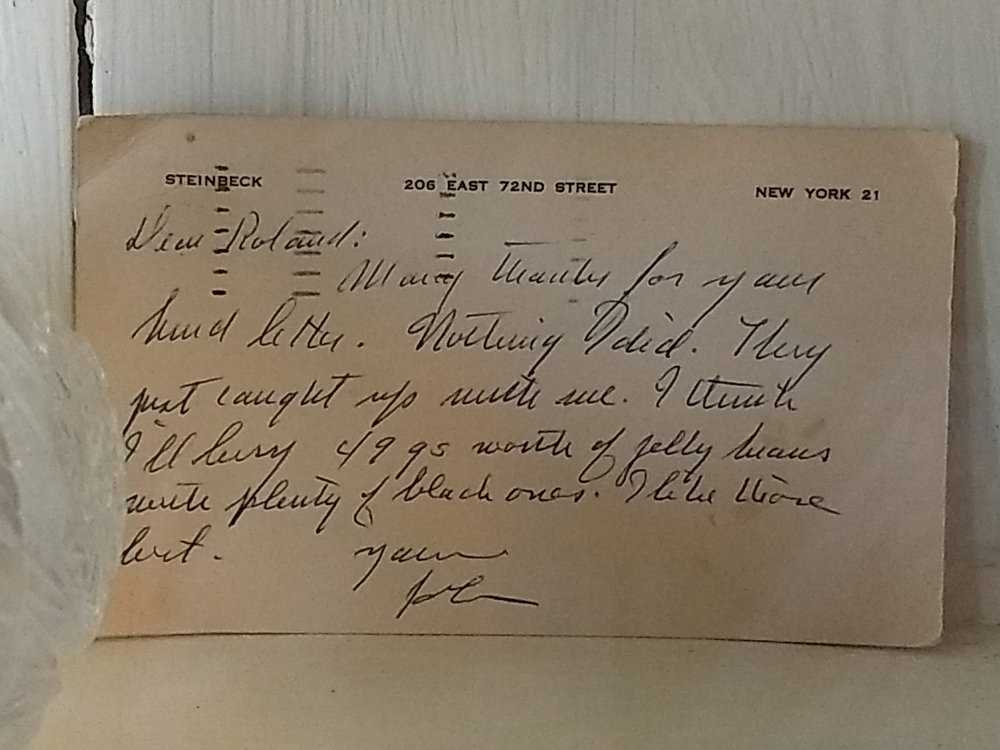 STEINBECK 206 EAST 72ND STREET NEW YORK 21
Dear Roland:
Many thanks for your
kind letter. Nothing I did. They
just caught up with me. I think
I'll buy 49 95 worth of jelly beans
with plenty of black ones. I like those
best.
yours
John